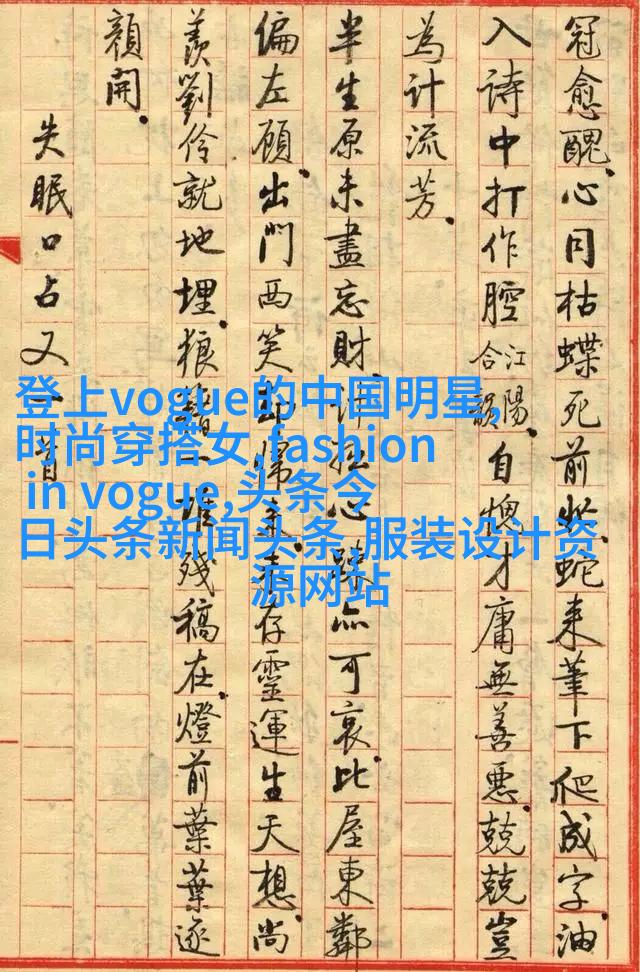 冠愈醜。心同枯蝶死前 蛇来筆下爬成字。油
入詩中打作腔。江陽合韻 自愧才庸無善惡。兢兢豈
為計流芳。
半生原未盡忘財。計 心 亦可哀。比屋東鄰
偏左顧。出門西笑即歸 存靈運生天想。尚
羨劉伶就地埋。狼籍一堆殘稿在。燈前葉葉逐
顏開。
失眠口占又一首
登上vogue的中国明星,
时尚穿搭女,fashion
in vogue,头条今
日头条新闻头条,服装设计资
源网站